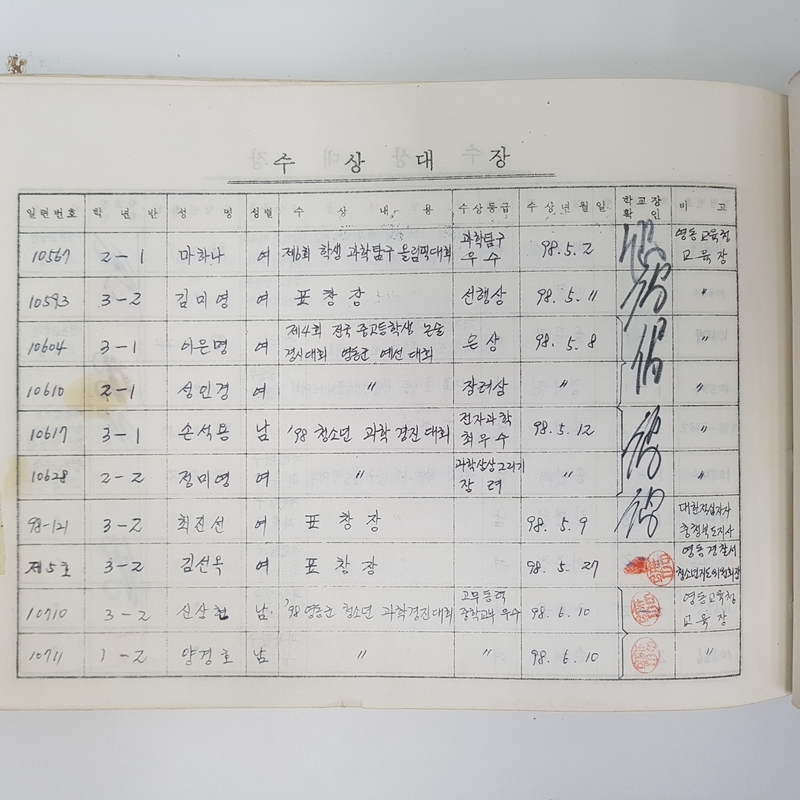 수 상 대 장
일련번호 학 년 반 성 명 성별 수 상 내 용 수상등급 수 상 년 월 일 학교장 확 인 비 고
10567 2-1 마하나 여 제6회 학생 과학탐구 올림픽대회 과학탐구 우수 98.5.2 영동교육청 교육장
10593 3-2 김미영 여 표창장 선행상 98.5.11 〃
10604 3-1 이은명 여 제4회 전국 중고등학생 논술 경시대회 영동군 예선대회 은상 98.5.8 〃
10610 2-1 성인경 여 〃 장려상 〃 〃
10617 3-1 손석용 남 '98 청소년 과학경진대회 전자과학 최우수 98.5.12 〃
10628 2-2 정미영 여 〃 과학상상그리기 장려 〃 〃
98-121 3-2 최진선 여 표창장 98.5.9 대한적십자사 충청북도지사
제5호 3-2 김선옥 여 표창장 98.5.27 영동경찰서 청소년지도위원회장
10710 3-2 신상현 남 '98 영동군 청소년 과학경진대회 고무동력 중학교부 우수 98.6.10 영동교육청 교육장
10711 1-2 양경호 남 〃 〃 98.6.10 〃